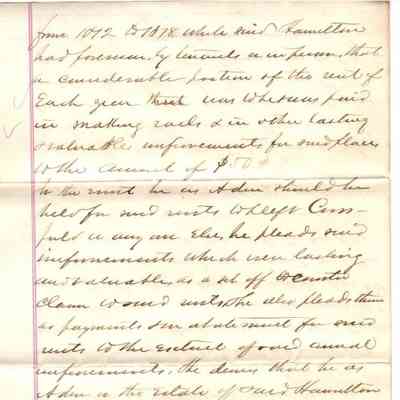 from 1872 to 1878 while said Hamilton
had possession by tenants or in person, that
a considerable portion of the rent of
Each year was paid
in making rails & in other lasting
& valuable improvements for said place
to the amount of $500
he as Adm should be
held for said rents to
or any one Else, he pleads said
improvements which were lasting
and valuable, as a set off to
Claim to said rents, he also pleads them
as payments & in abatement for said
rents to the Extent of said annual
improvements. He denies that he as
Adm of the Estate of said Hamilton